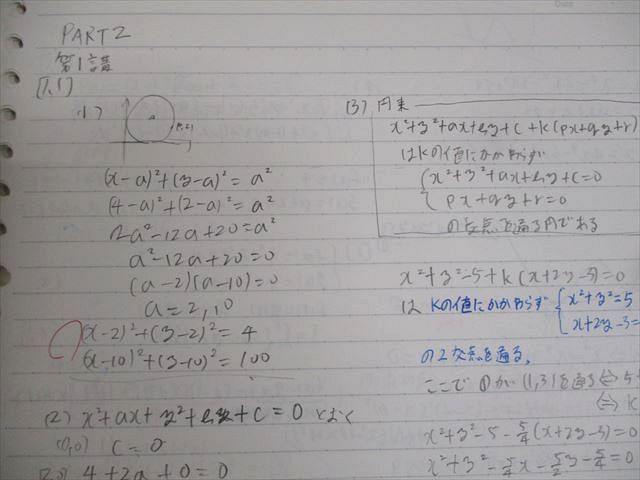 PART2
第1講
[1,1]
(1)
(4,2)
(x-a)²+(y-a)²=a²
(4-a)²+(2-a)²=a²
2a²-12a+20=a²
a²-12a+20=0
(a-2)(a-10)=0
a=2,10
(x-2)²+(y-2)²=4
(x-10)²+(y-10)²=100
(2) x²+ax+y²+by+c=0 とおく
(0,0) c=0
4+2a+0=0
(3) 円束
x²+y²+ax+by+c+k(px+qy+r)
はkの値にかかわらず
{x²+y²+ax+by+c=0
px+qy+r=0
の交点を通る円である
x²+y²-5+k(x+2y-5)=0
は kの値にかかわらず {x²+y²=5
x+2y-5=
の2交点を通る。
ここで ①が(1,3)を通る⇔5+
⇔k
x²+y²-5-5/4(x+2y-5)=0
x²+y²-5/4x-5/2y-5/4=0